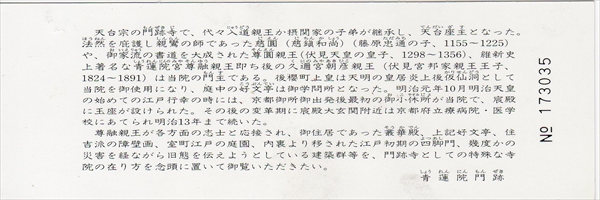 天台宗の門跡寺で、代々入道親王か摂関家の子弟が継承し、天台座主となった。
法然を庇護し親鸞の師であった慈圓（慈鎮和尚）（藤原忠通の子、1155～1225）
や、御家流の書道を大成された尊圓親王（伏見天皇の皇子、1298～1356）、維新史
上著名な青蓮院宮尊融親王即ち後の久邇宮朝彦親王（伏見宮邦家親王王子、
1824～1891）は当院の門主である。後櫻町上皇は天明の皇居炎上後仮仙洞として
当院を御使用になり、庭中の好文亭は御学問所となった。明治元年10月明治天皇
の始めての江戸行幸の時には、京都御所御出発後最初の御小休所が当院で、宸殿
に玉座が設けられた。その後の変革期に宸殿大玄関附近は京都府立療病院・医学
校にあてられ明治13年まで続いた。
尊融親王が各方面の志士と応接され、御住居であった叢華殿、上記好文亭、住
吉派の障壁画、室町江戸の庭園、内裏より移された江戸初期の四脚門、幾度かの
災害を経ながら旧態を伝えようとしている建築群等を、門跡寺としての特殊な寺
院の在り方を念頭に置いて御覧いただきたい。
青蓮院門跡
№ 173035